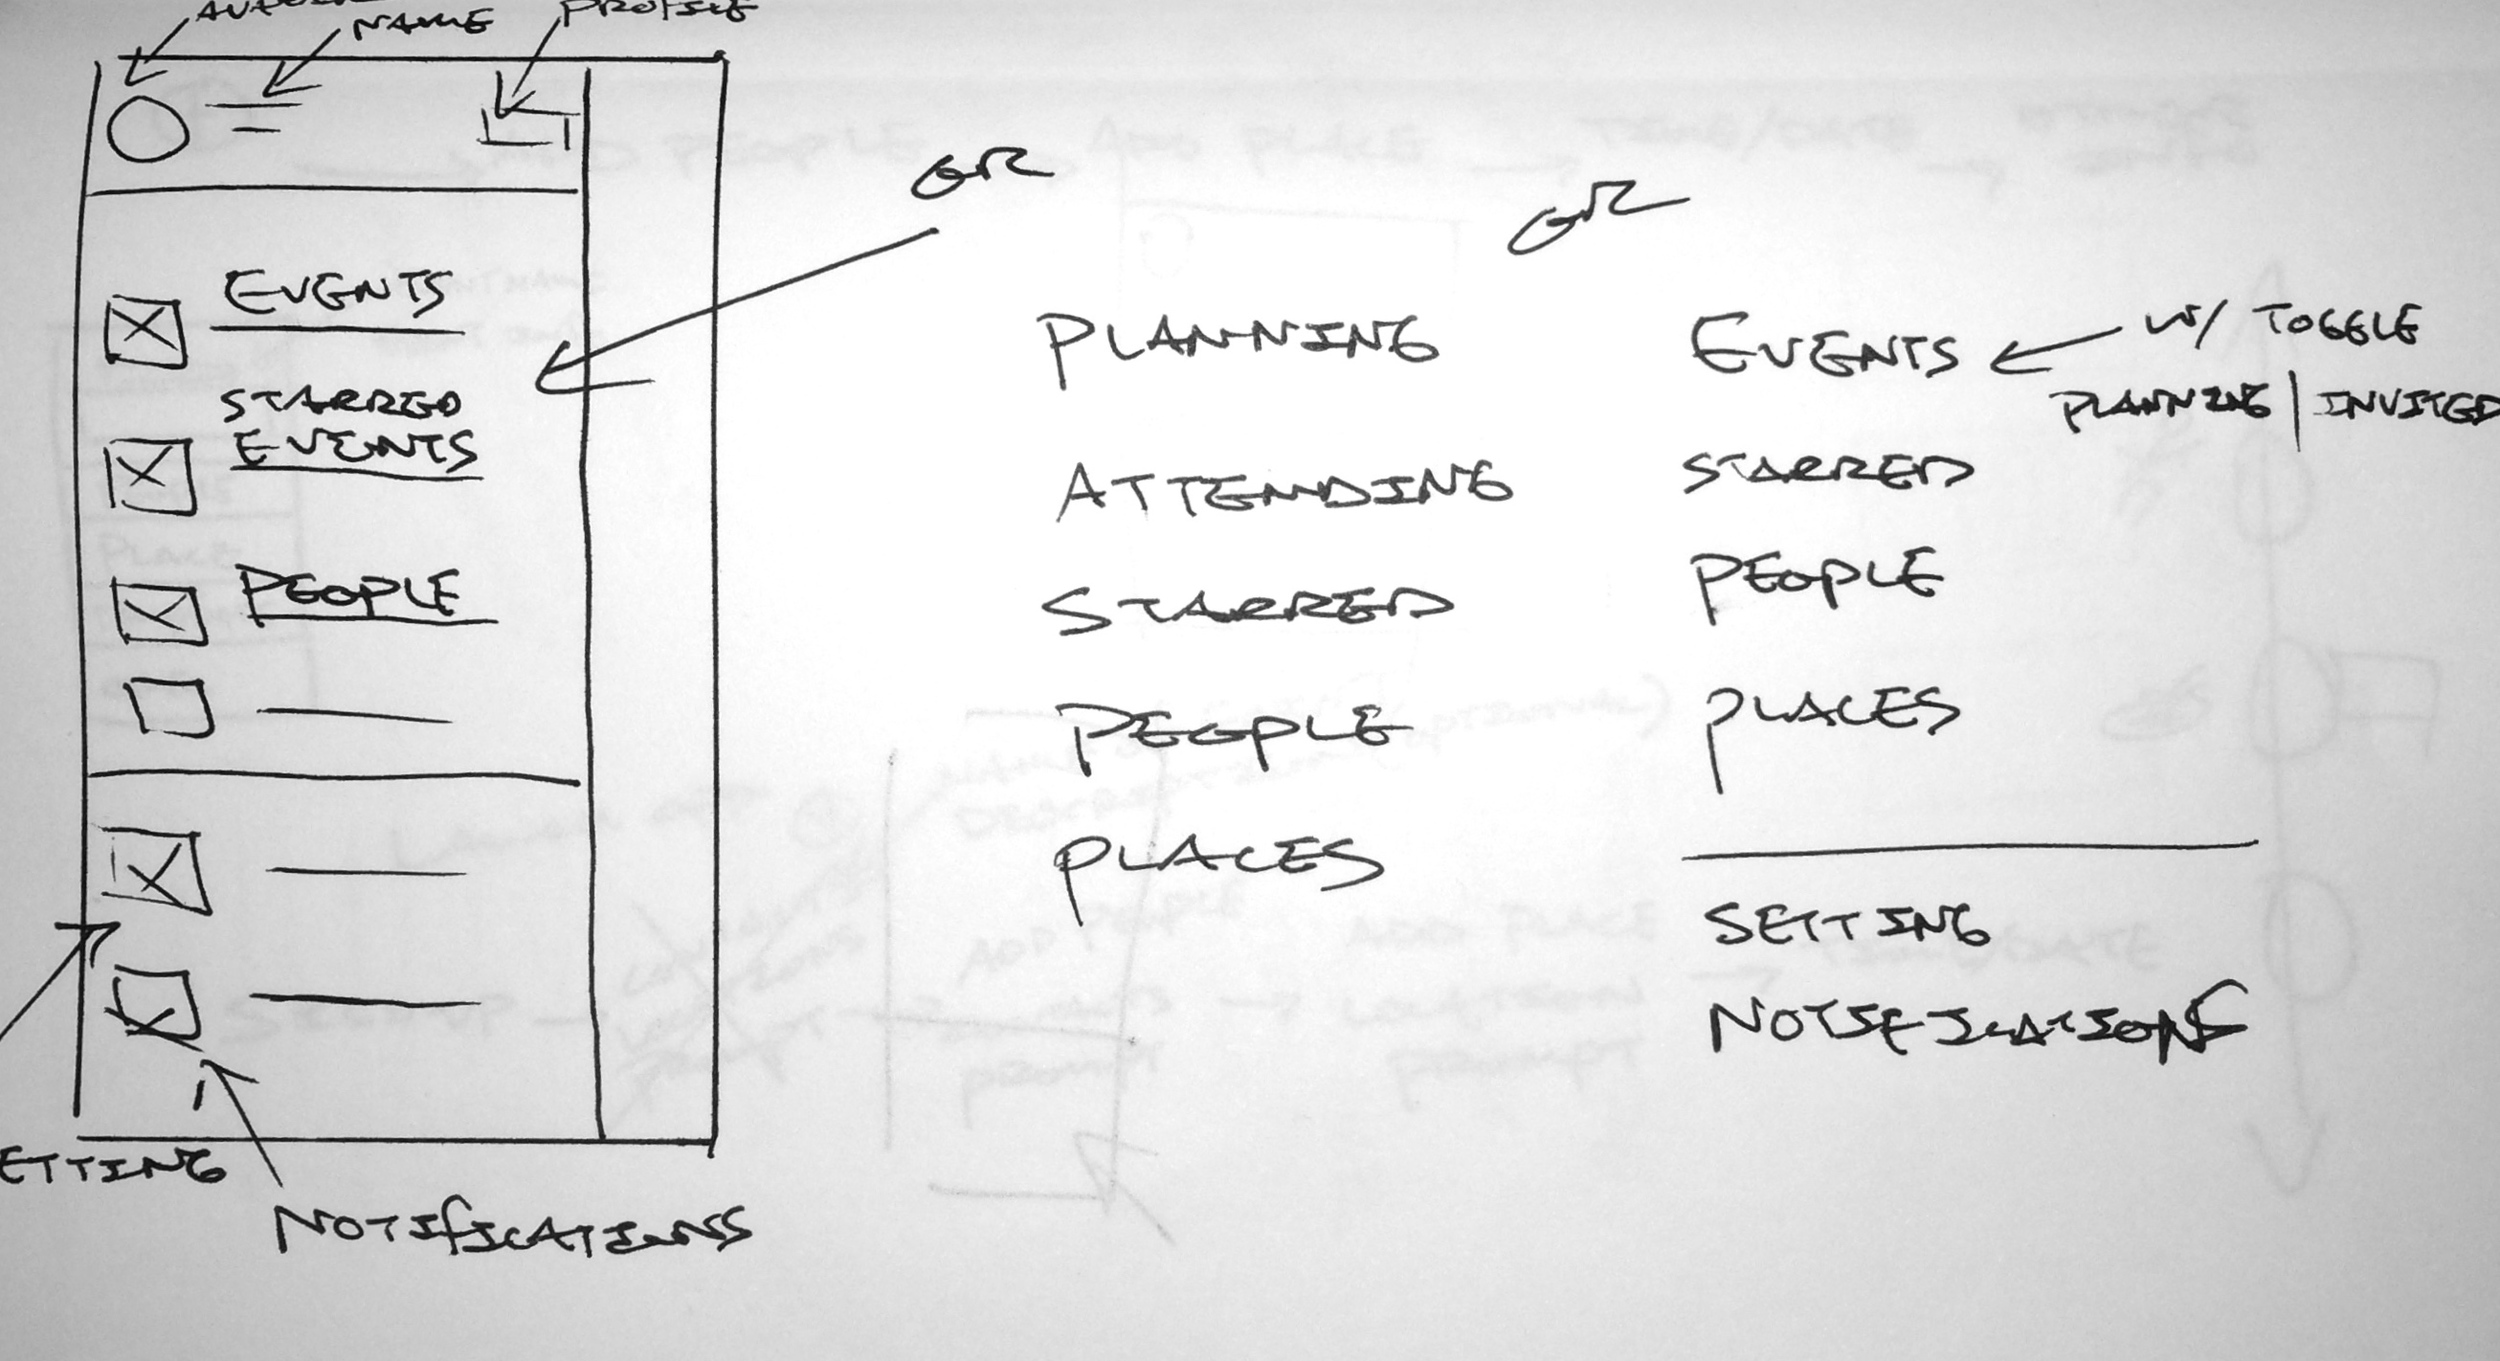 NAME
PROFILE
EVENTS
STARRED
EVENTS
PEOPLE
ETTING
NOTIFICATIONS
OR
PLANNING
ATTENDING
STARRED
PEOPLE
PLACES
OR
EVENTS
W/ TOGGLE
PLANNING | INVITED
STARRED
PEOPLE
PLACES
SETTING
NOTIFICATIONS